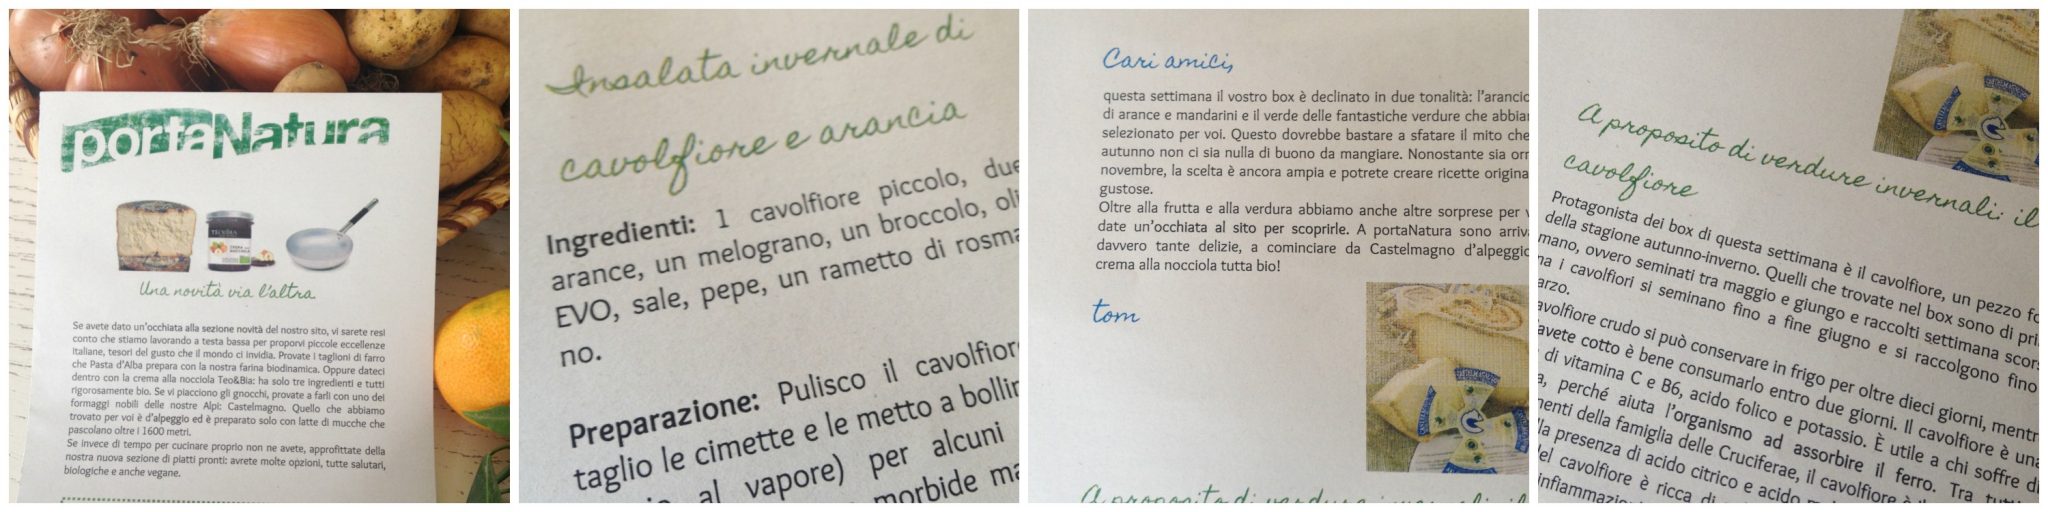 portaNatura
Una novità via l'altra
Se avete dato un'occhiata alla sezione novità del nostro sito, vi sarete resi
conto che stiamo lavorando a testa bassa per proporvi piccole eccellenze
italiane, tesori del gusto che il mondo ci invidia. Provate i taglioni di farro
che Pasta d'Alba prepara con la nostra farina biodinamica. Oppure dateci
dentro con la crema alla nocciola Teo&Bia: ha solo tre ingredienti e tutti
rigorosamente bio. Se vi piacciono gli gnocchi, provate a farli con uno dei
formaggi nobili delle nostre Alpi: Castelmagno. Quello che abbiamo
trovato per voi è d'alpeggio ed è preparato solo con latte di mucche che
pascolano oltre i 1600 metri.
Se invece di tempo per cucinare proprio non ne avete, approfittate della
nostra nuova sezione di piatti pronti: avrete molte opzioni, tutte salutari,
biologiche e anche vegane.
Insalata invernale di
cavolfiore e arancia
Ingredienti: 1 cavolfiore piccolo, due
arance, un melograno, un broccolo, oli
EVO, sale, pepe, un rametto di rosma
no.
Preparazione: Pulisco il cavolfior
taglio le cimette e le metto a bollir
al vapore) per alcuni
morbide ma
Cari amici,
questa settimana il vostro box è declinato in due tonalità: l'arancio
di arance e mandarini e il verde delle fantastiche verdure che abbia
selezionato per voi. Questo dovrebbe bastare a sfatare il mito che
autunno non ci sia nulla di buono da mangiare. Nonostante sia orm
novembre, la scelta è ancora ampia e potrete creare ricette origina
gustose.
Oltre alla frutta e alla verdura abbiamo anche altre sorprese per v
date un'occhiata al sito per scoprirle. A portaNatura sono arriva
davvero tante delizie, a cominciare da Castelmagno d'alpeggio
crema alla nocciola tutta bio!
tom
A proposito di verdure invernali: il
A proposito di verdure invernali: il
cavolfiore
Protagonista dei box di questa settimana è il cavolfiore, un pezzo fo
della stagione autunno-inverno. Quelli che trovate nel box sono di pri
mano, ovvero seminati tra maggio e giungo e raccolti settimana scors
na i cavolfiori si seminano fino a fine giugno e si raccolgono fino
arzo.
avolfiore crudo si può conservare in frigo per oltre dieci giorni, mentr
avete cotto è bene consumarlo entro due giorni. Il cavolfiore è una
di vitamina C e B6, acido folico e potassio. È utile a chi soffre di
a, perché aiuta l'organismo ad assorbire il ferro. Tra tut
menti della famiglia delle Cruciferae, il cavolfiore è
la presenza di acido citrico e acido
del cavolfiore è ricca di
infiammazio